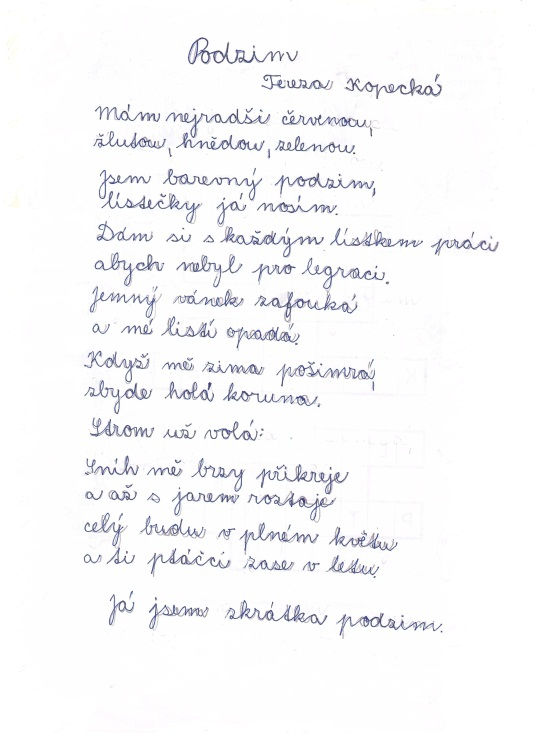 Podzim
Tereza Kopecká
Mám nejradši červenou,
žlutou, hnědou, zelenou.
Jsem barevný podzim,
lístečky já nosím.
Dám si s každým lístkem práci
abych nebyl pro legraci.
Jemný vánek zafouká
a mé listí opadá.
Když mě zima pošimrá,
zbyde holá koruna.
Strom už volá:
Sníh mě brzy přikreje
a až s jarem roztaje
celý budu v plném květu
a ti ptáčci zase v letu.
Já jsem zkrátka podzim.